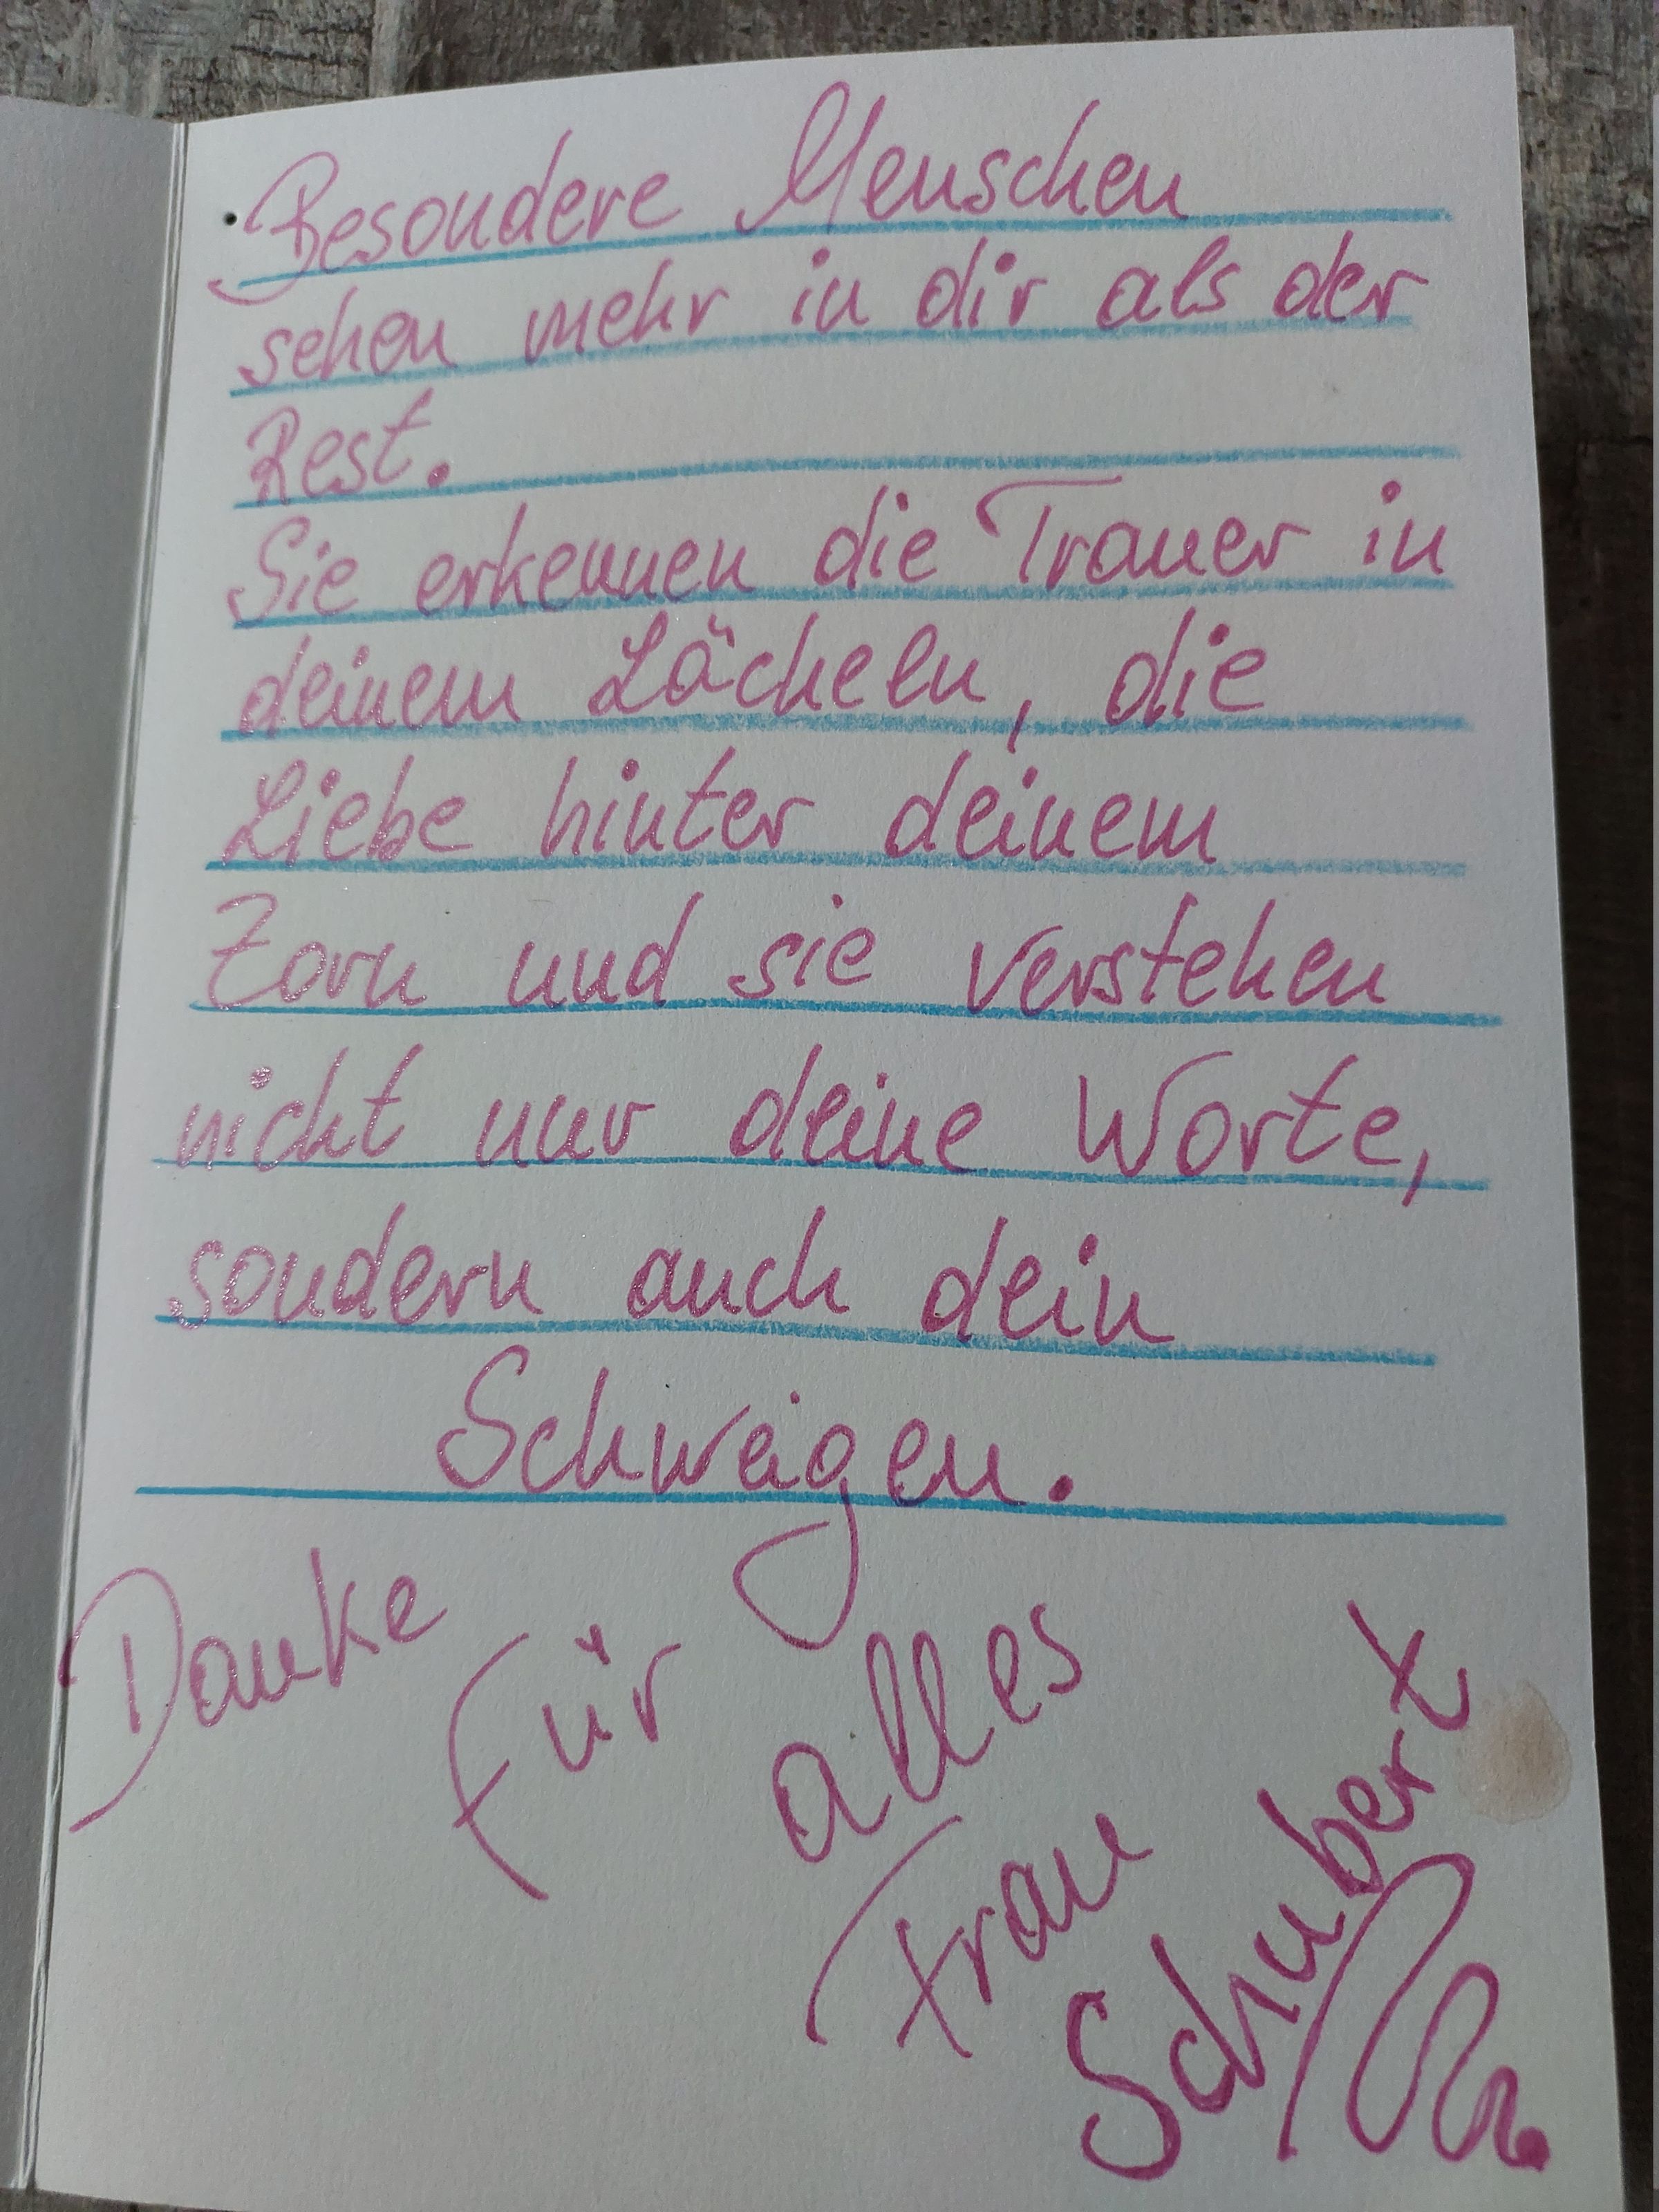 Besondere Menschen
sehen mehr in dir als der
Rest.
Sie erkennen die Trauer in
deinem Lächeln, die
Liebe hinter deinem
Zorn und sie verstehen
nicht nur deine Worte,
sondern auch dein
Schweigen.
Danke
für
alles
Frau
Schubert